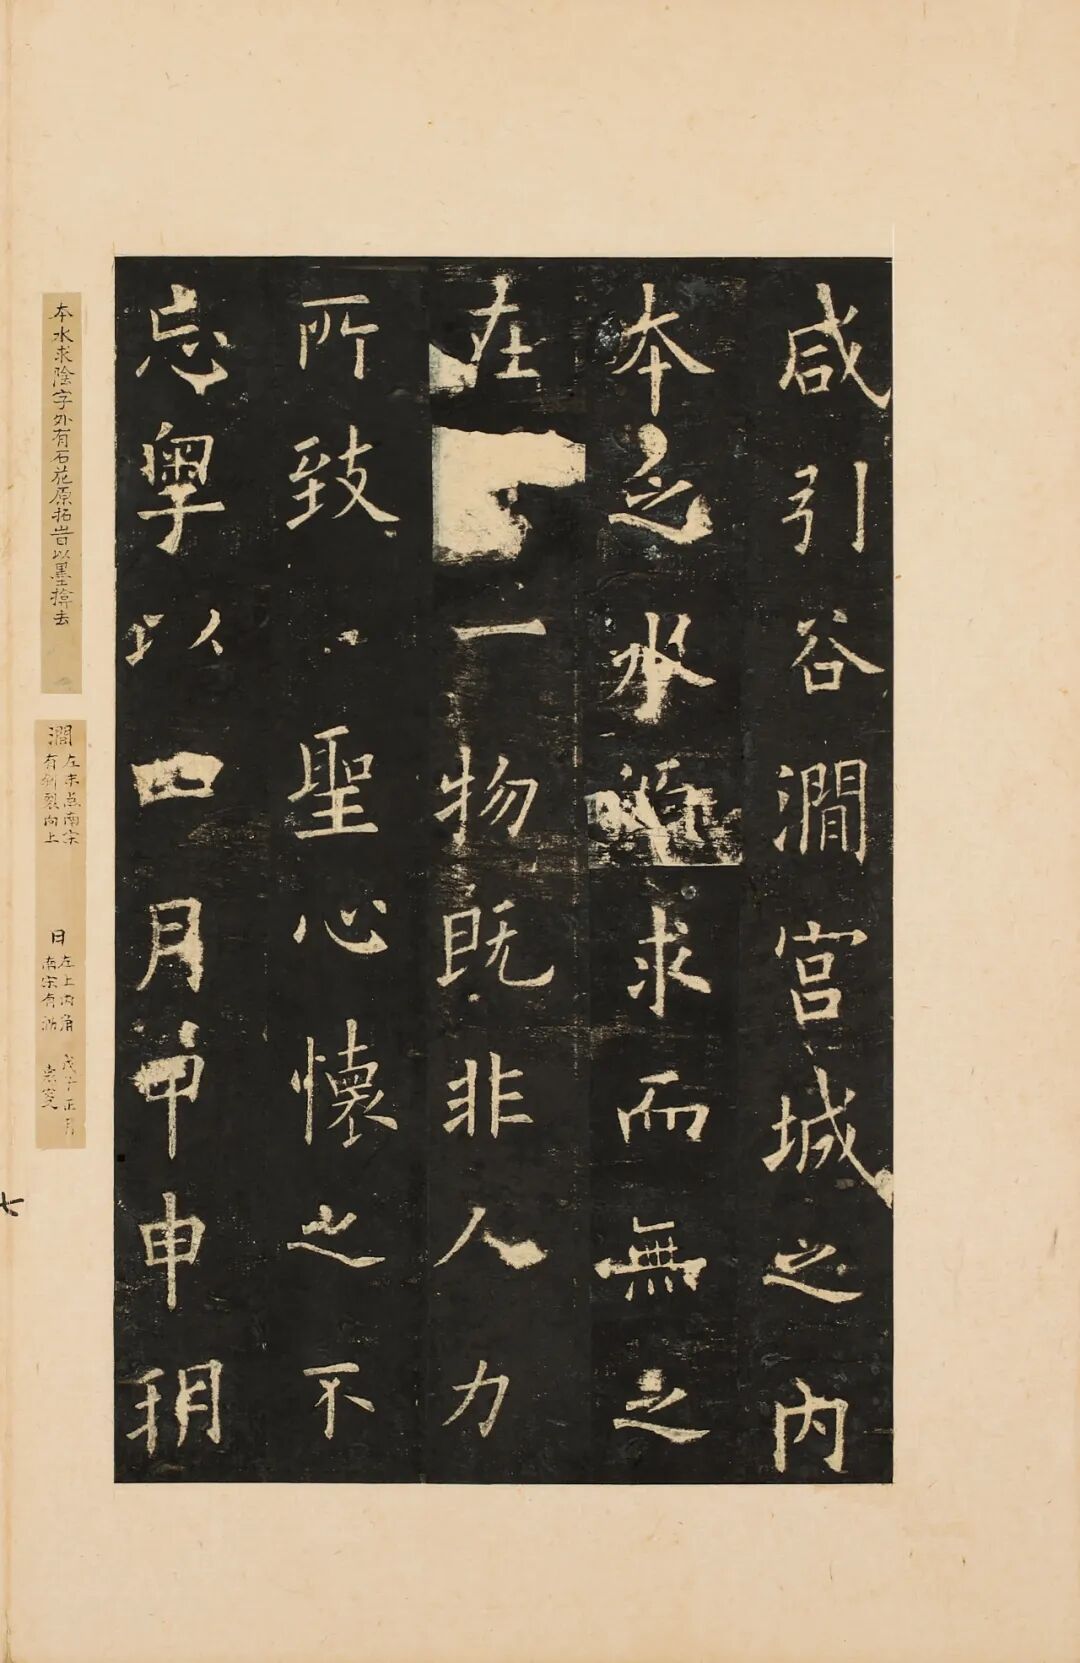 咸引谷澗宮城之内
本乏水源求而無之
在一物既非人力
所致聖心懷之不
忘粤以四月甲申朔
本水求陰字外有石花原拓皆以墨撐去
澗
左末點南宋
有新裂向上
月
左上内角
南宋有泐
戊子正月
七